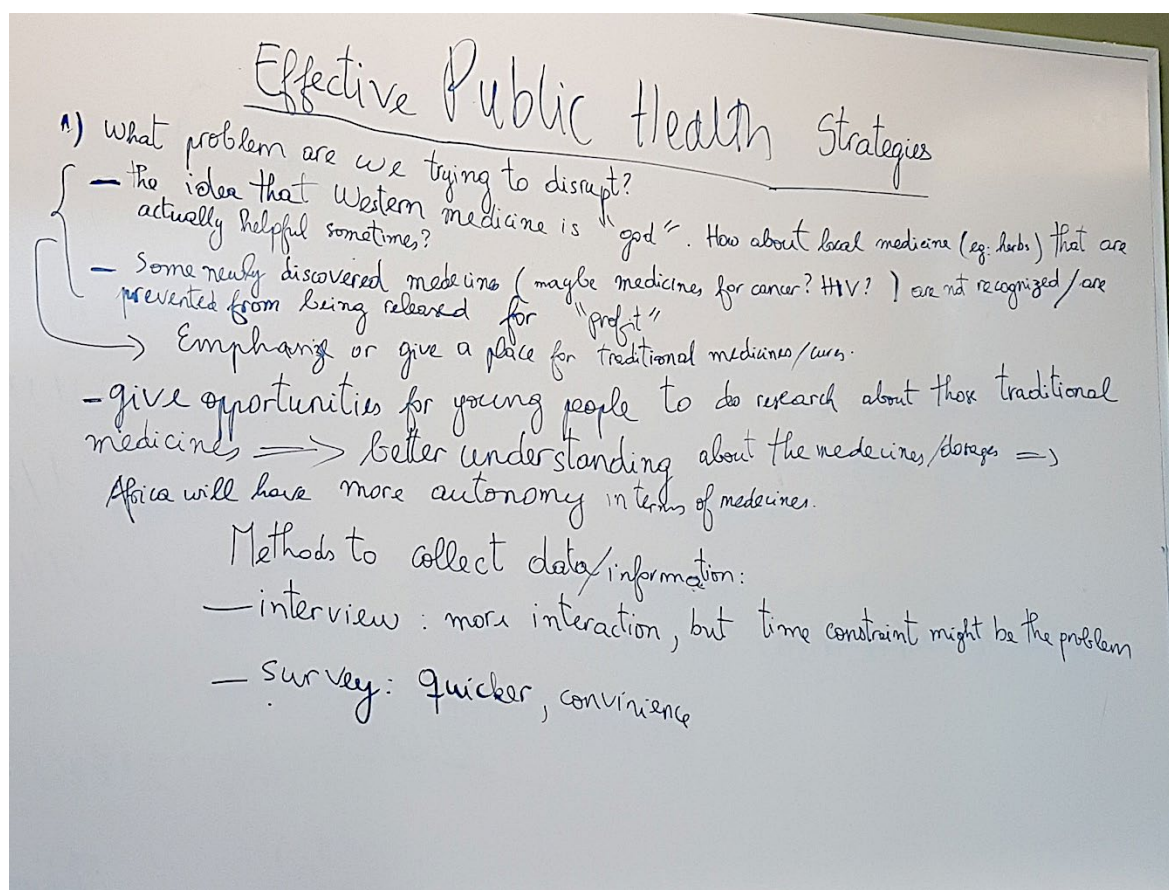 Effective Public Health Strategies
1) What problem are we trying to disrupt?
- the idea that Western medicine is "god". How about local medicine (eg: herbs) that are
actually helpful sometimes?
- Some newly discovered medecine (maybe medicines for cancer? HIV?) are not recognized/are
prevented from being released for "profit"
→ Emphasize or give a place for traditional medicines/cures.
- give opportunities for young people to do research about those traditional
medicines => better understanding about the medecines/dosages =>
Africa will have more autonomy in terms of medecines.
Methods to collect data/information:
- interview: more interaction, but time constraint might be the problem
- survey: quicker, convinience